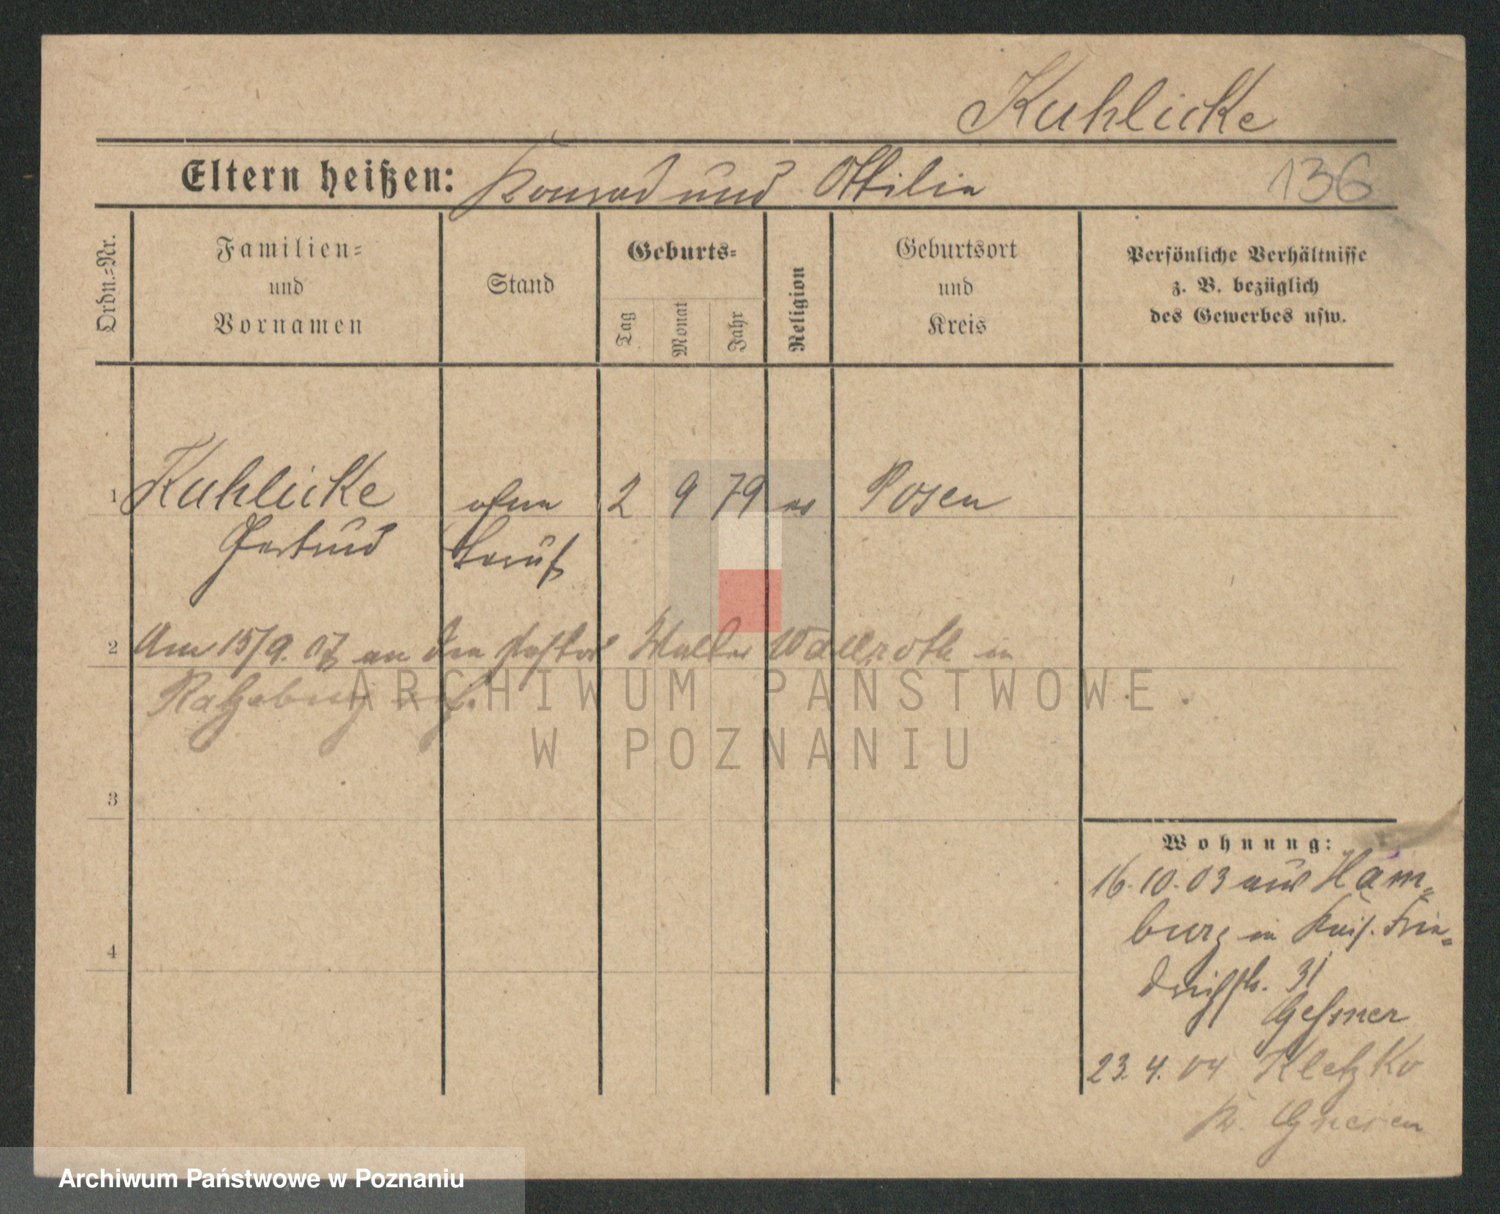 Kuhlicke
Eltern heißen: Konrad und Ottilie
136
Ordn.-Nr.
Familien-
und
Vornamen
Stand
Geburts-
Tag
Monat
Jahr
Religion
Geburtsort
und
Kreis
Persönliche Verhältnisse
z. B. bezüglich
des Gewerbes usw.
1 Kuhlicke ohne 2 9 79 ev Posen
Gertrud Beruf
2 Am 15/9. 07 an den Pastor Walter Wallroth in
Ratzeburg verh.
ARCHIWUM PAŃSTWOWE
W POZNANIU
3
4
Wohnung:
16.10.03 aus Ham-
burg in Kais. Frie-
drichstr. 31
Gessner
23.4.04 Kletzko
Kr. Gnesen
Archiwum Państwowe w Poznaniu